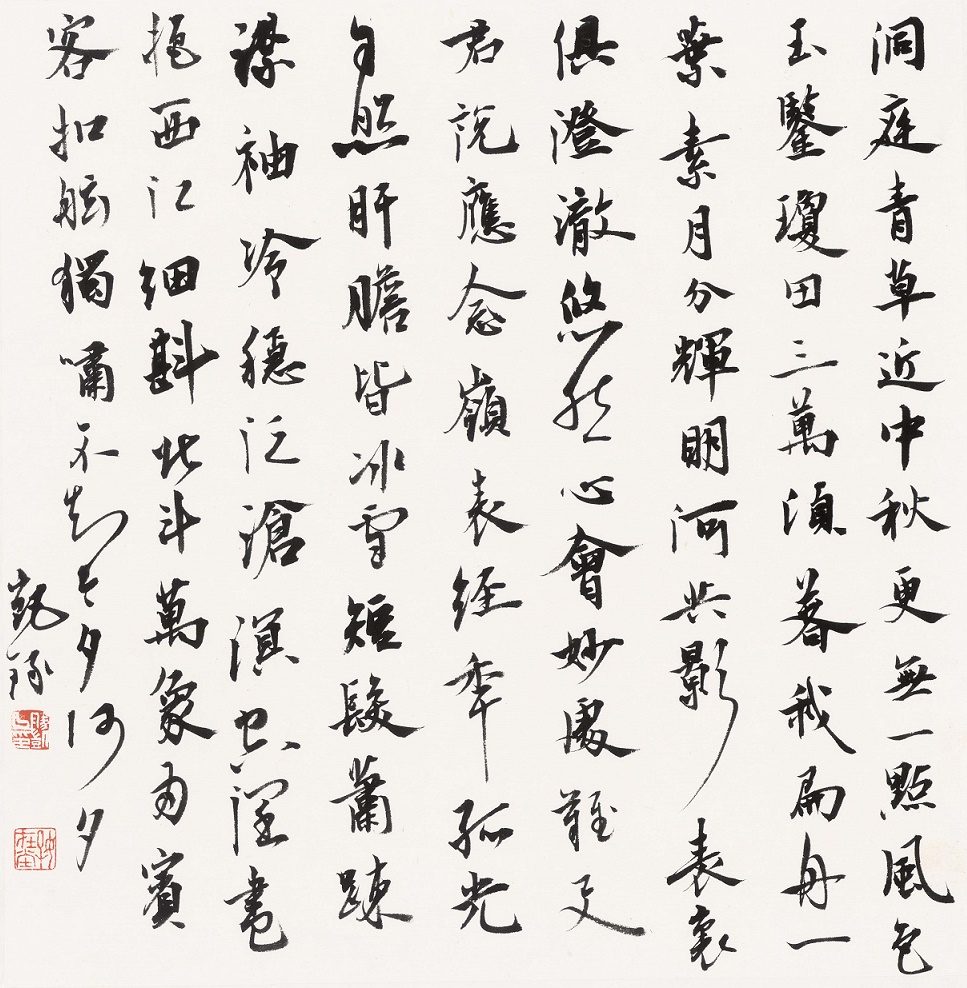 洞庭青草近中秋更無一點風色
玉鑒瓊田三萬頃著我扁舟一
葉素月分輝明河共影表裏
俱澄澈悠然心會妙處難与
君說應念嶺表經年孤光
自照肝膽皆冰雪短髮蕭疎
襟袖冷穩泛滄溟空闊盡
挹西江細斟北斗萬象為賓
客扣舷獨嘯不知今夕何夕
凱錄